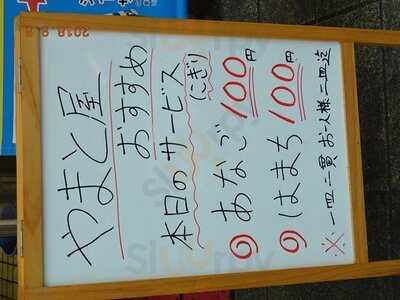 やまと屋
おすすめ
本日のサービス
(にぎり)
◎あなご 100円
◎はまち 100円
※一皿二貫 お一人様二皿迄
2018 9 8